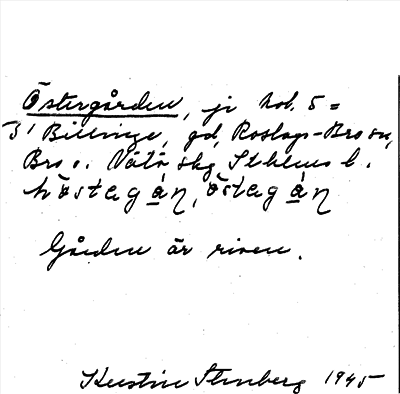 Östergården, ji No. 5 =
3' Billinge, gd, Roslags-Bro sn,
Bro o. Vätö skg Sthlms l.
höstegá̱ŋ, östegá̱ŋ
Gården är riven.
Kerstin Stenberg 1945